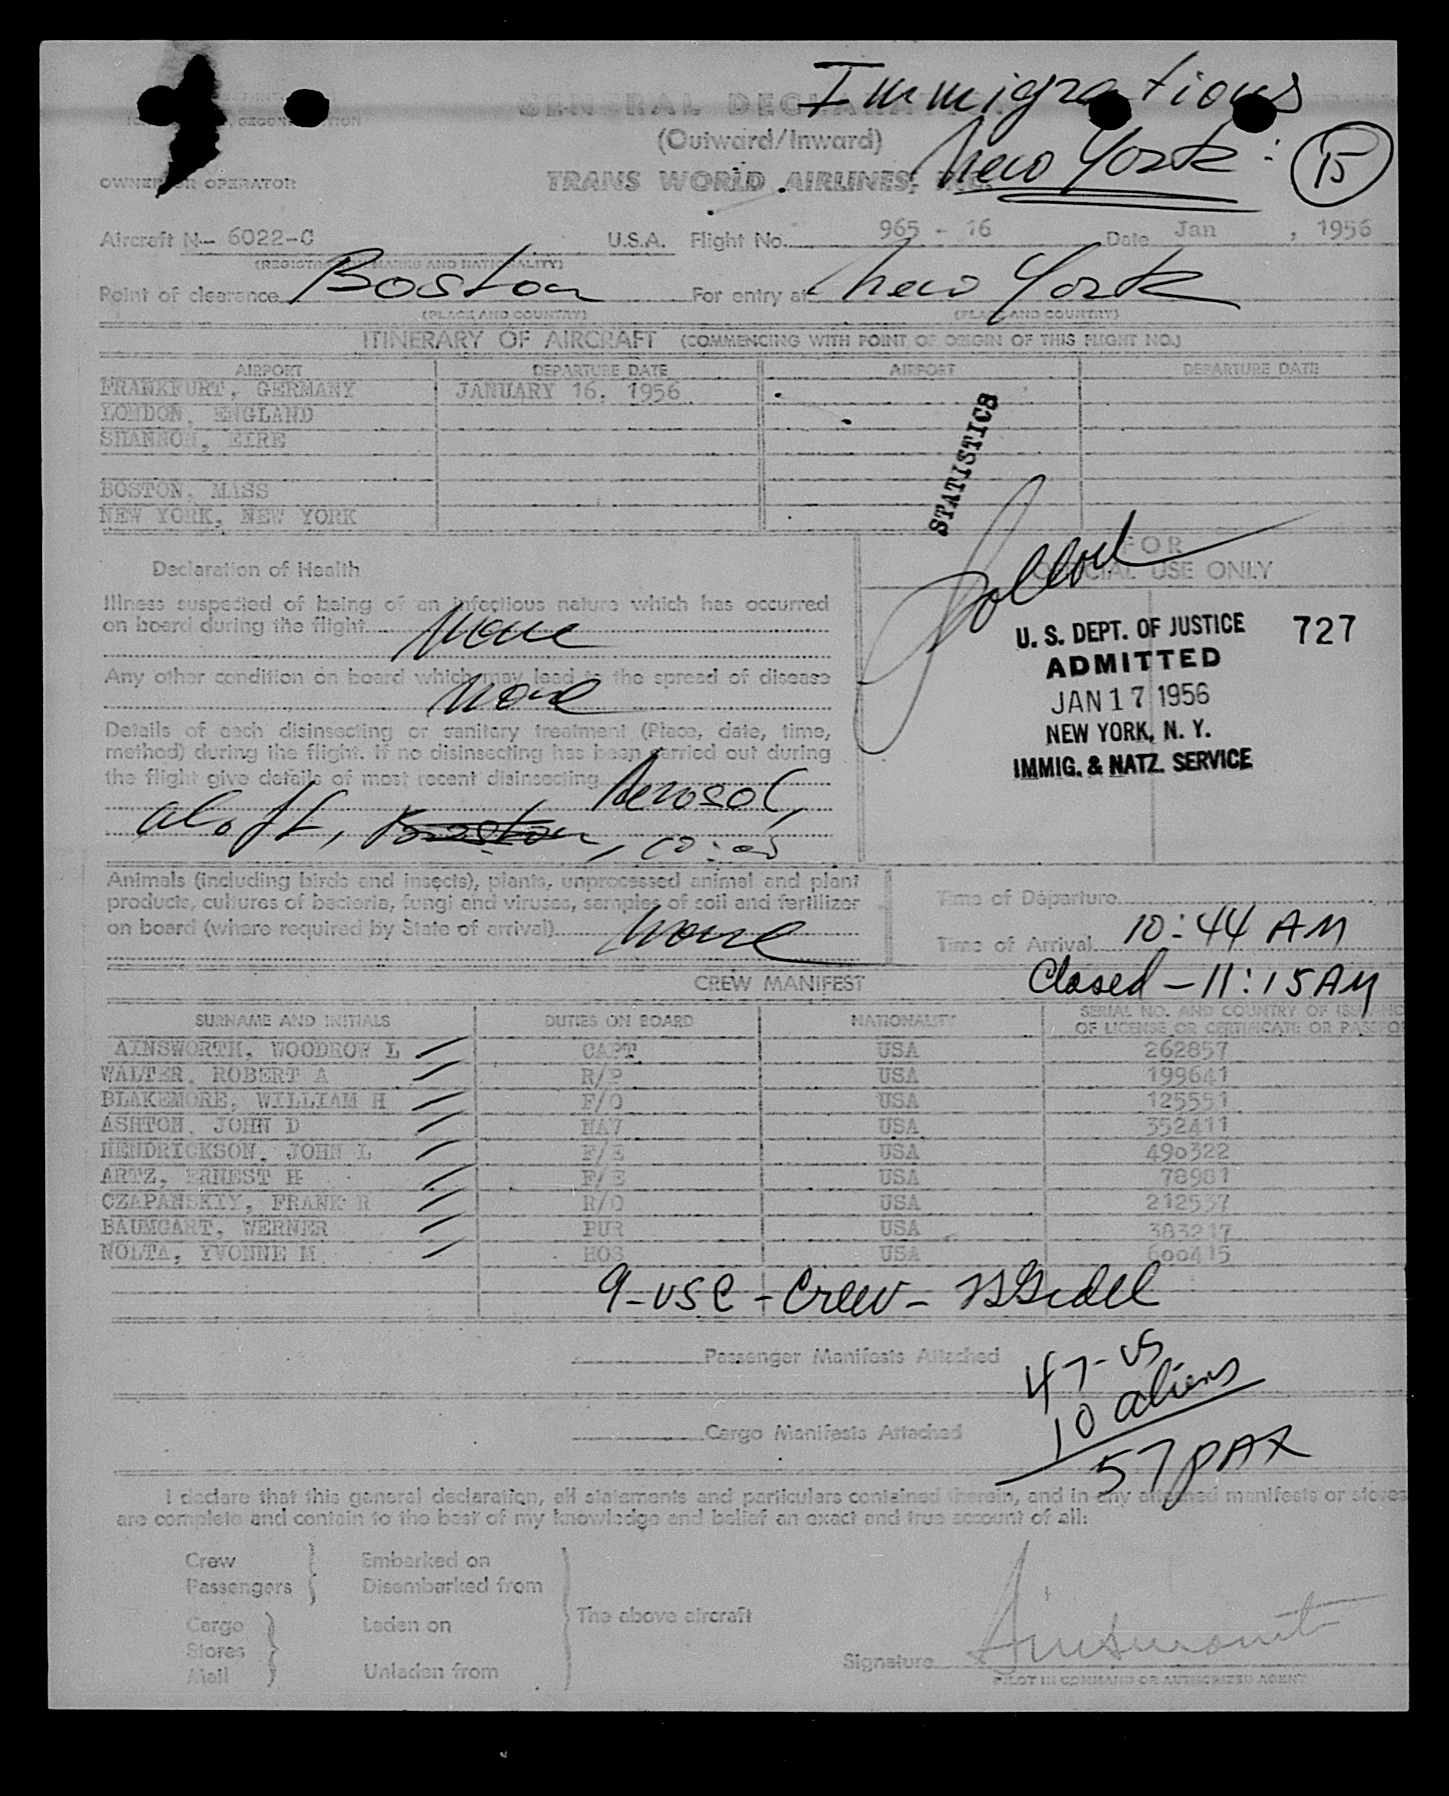 Immigrations
GENERAL DECLARATION
(Outward/Inward)
New York
OWNER OR OPERATOR
TRANS WORLD AIRLINES, INC.
Aircraft N-- 6022-C U.S.A. Flight No. 965 - 16 Date Jan , 1956
(REGISTRATION MARKS AND NATIONALITY)
Point of clearance Boston For entry at New York
(PLACE AND COUNTRY) (PLACE AND COUNTRY)
ITINERARY OF AIRCRAFT (COMMENCING WITH POINT OF ORIGIN OF THIS FLIGHT NO.)
AIRPORT DEPARTURE DATE AIRPORT DEPARTURE DATE
FRANKFURT, GERMANY JANUARY 16, 1956
LONDON, ENGLAND
SHANNON, EIRE
STATISTICS
BOSTON, MASS
NEW YORK, NEW YORK
FOR
OFFICIAL USE ONLY
Declaration of Health
Illness suspected of being of an infectious nature which has occurred
on board during the flight None
Any other condition on board which may lead to the spread of disease
None
U. S. DEPT. OF JUSTICE 727
ADMITTED
JAN 17 1956
NEW YORK, N. Y.
IMMIG. & NATZ. SERVICE
Details of each disinsecting or sanitary treatment (Place, date, time,
method) during the flight. If no disinsecting has been carried out during
the flight give details of most recent disinsecting Aerosol,
aloft, Boston,
Animals (including birds and insects), plants, unprocessed animal and plant
products, cultures of bacteria, fungi and viruses, samples of soil and fertilizer
on board (where required by State of arrival) None
Time of Departure
Time of Arrival 10:44 AM
Closed - 11:15 AM
CREW MANIFEST
SURNAME AND INITIALS DUTIES ON BOARD NATIONALITY SERIAL NO. AND COUNTRY OF ISSUANC
OF LICENSE OR CERTIFICATE OR PASSPO
AINSWORTH, WOODROW L CAPT USA 262857
WALTER, ROBERT A R/P USA 199641
BLAKEMORE, WILLIAM H F/O USA 125551
ASHTON, JOHN D NAV USA 352411
HENDRICKSON, JOHN L F/E USA 490322
ARTZ, ERNEST H F/E USA 78981
CZAPANSKIY, FRANK R R/O USA 212537
BAUMGART, WERNER PUR USA 383217
NOLTA, YVONNE M HOS USA 600415
9-USC-Crew-
Passenger Manifests Attached
47-US
10 aliens
Cargo Manifests Attached
57 PAX
I declare that this general declaration, all statements and particulars contained therein, and in any attached manifests or stores
are complete and contain to the best of my knowledge and belief an exact and true account of all:
Crew Embarked on
Passengers Disembarked from
The above aircraft
Cargo Laden on
Stores
Mail Unladen from
Signature Ainsworth
PILOT IN COMMAND OR AUTHORIZED AGENT